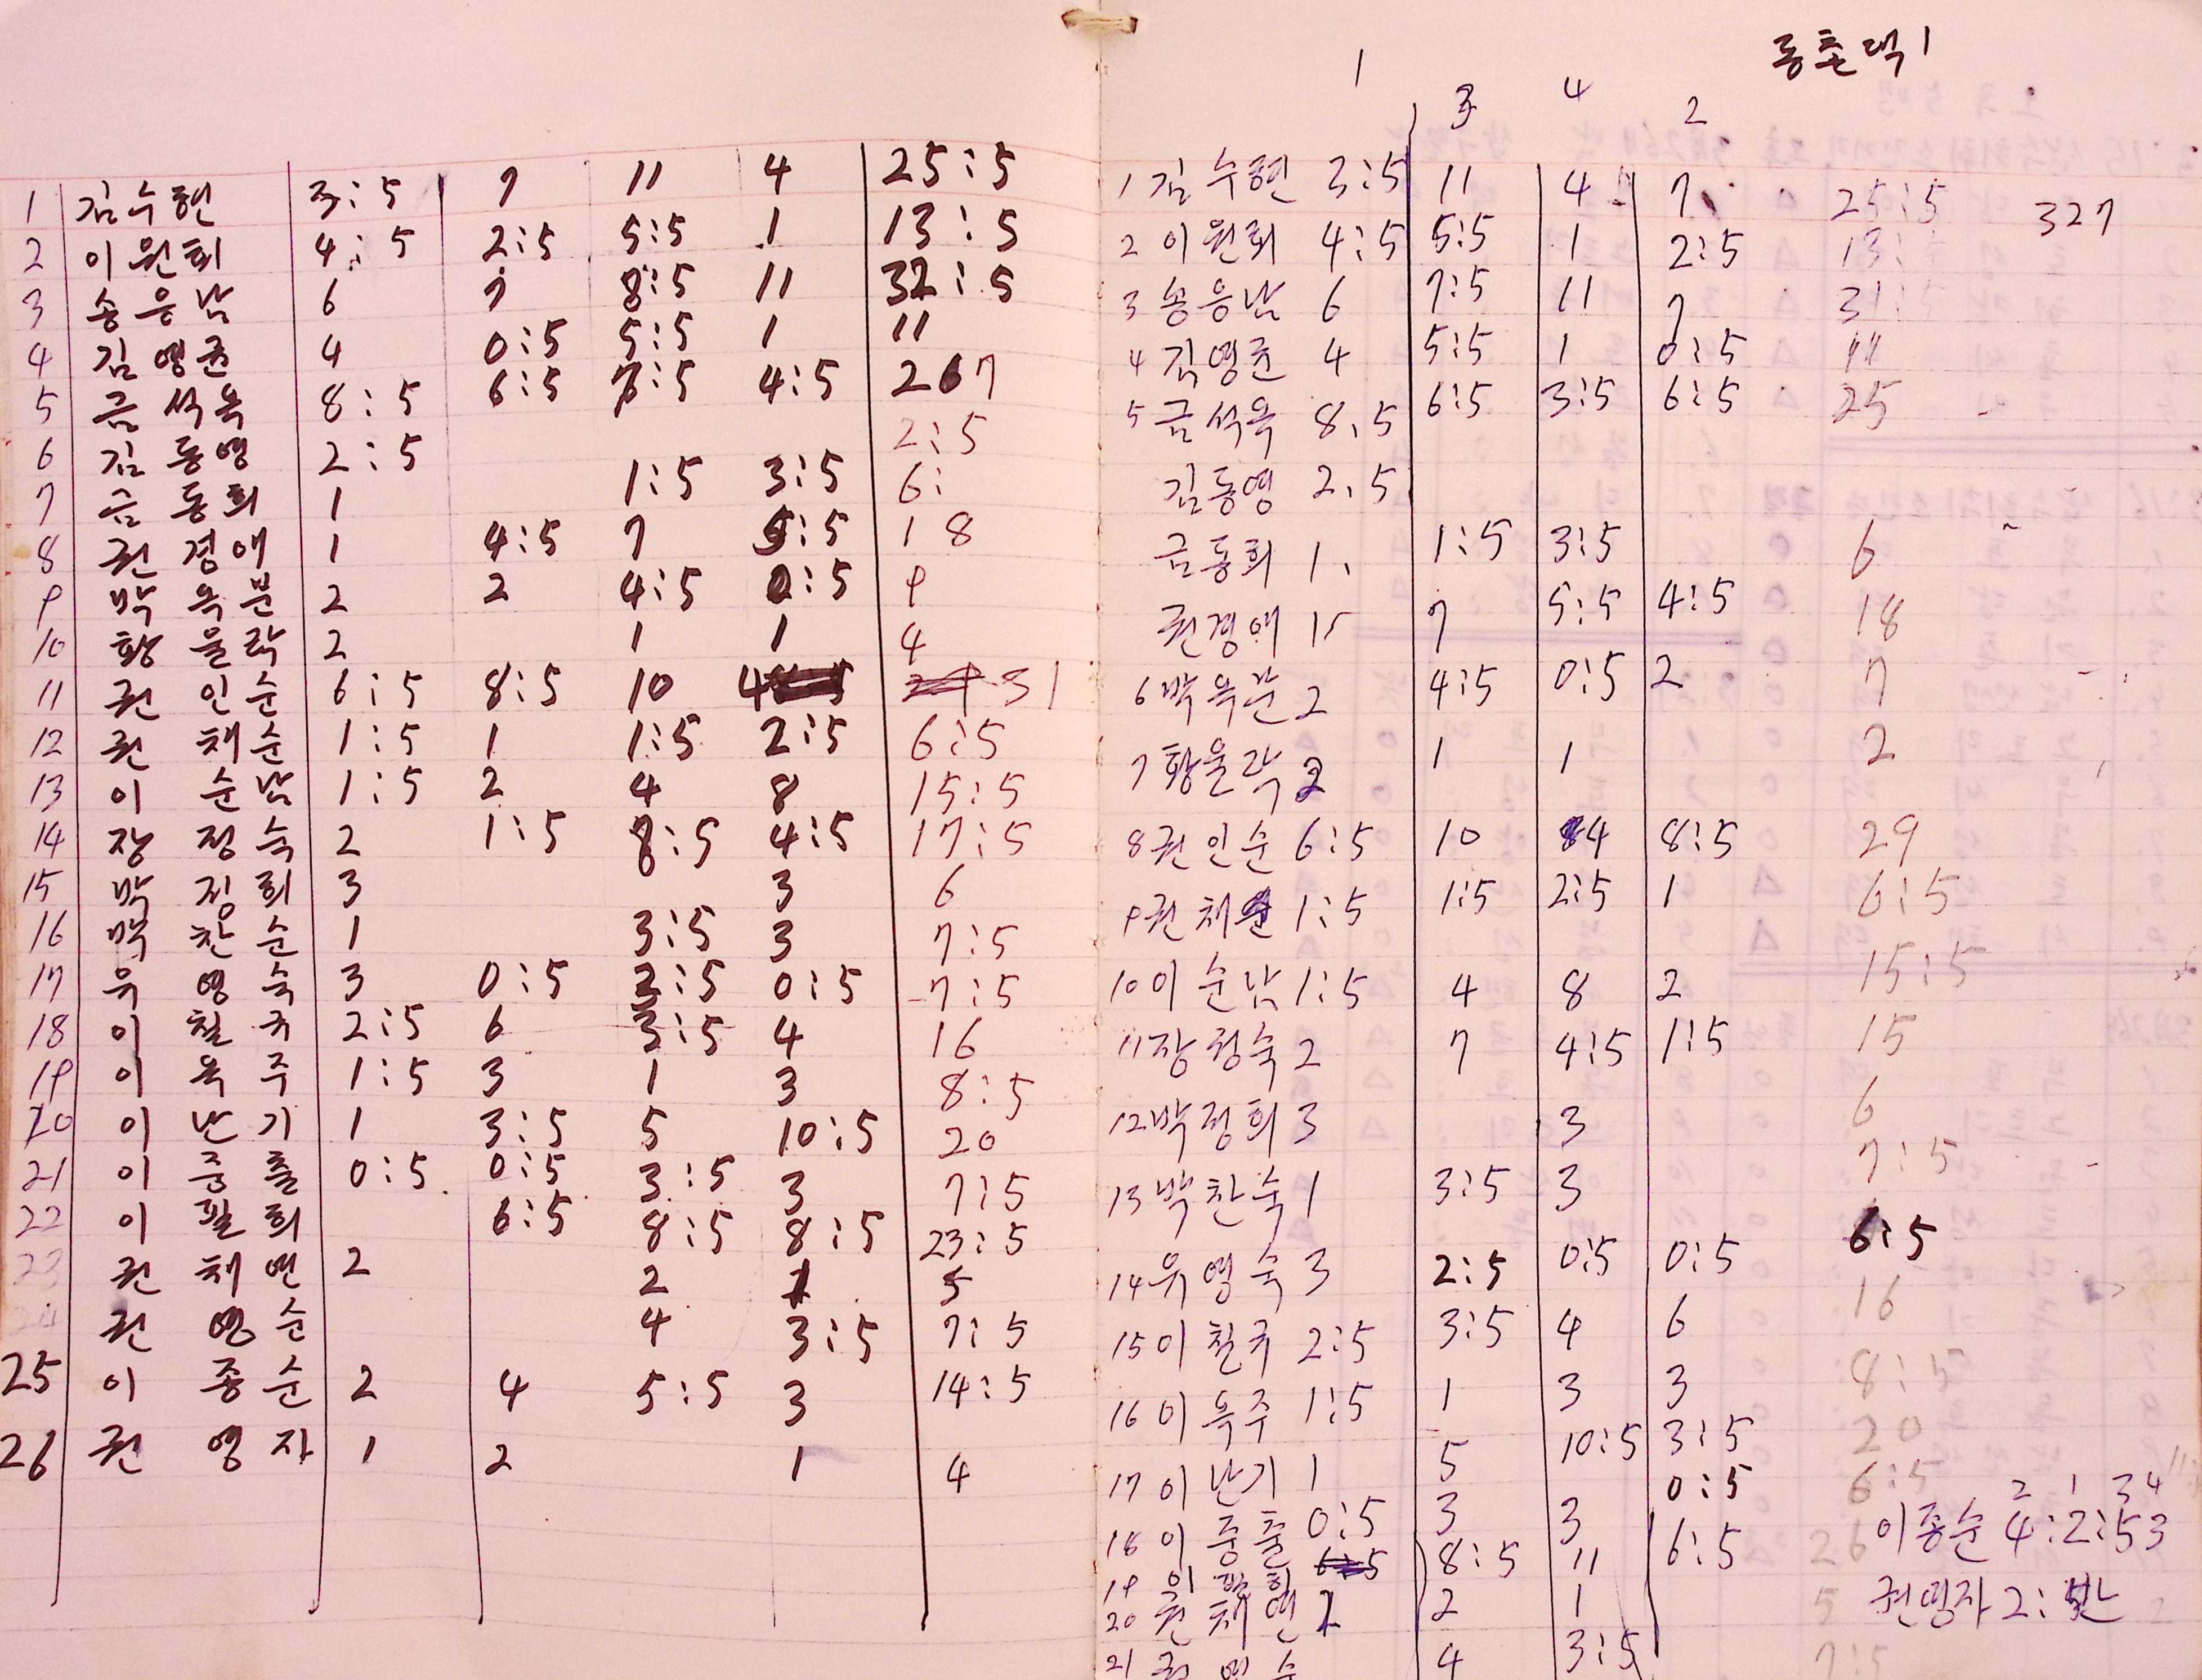 1 김수현 3:5 7 11 4 25:5
2 이원희 4:5 2:5 5:5 1 13:5
3 송응남 6 7 8:5 11 32:5
4 김영균 4 0:5 5:5 1 11
5 금석옥 8:5 6:5 7:5 4:5 267
6 김동영 2:5 2:5
7 금동희 1 1:5 3:5 6:
8 권경애 1 4:5 7 5:5 18
9 박옥분 2 2 4:5 0:5 9
10 황을락 2 1 1 4
11 권인순 6:5 8:5 10 4 31
12 권채순 1:5 1 1:5 2:5 6:5
13 이순남 1:5 2 4 8 15:5
14 장정숙 2 1:5 8:5 4:5 17:5
15 박정희 3 3 6
16 박찬순 1 3:5 3 7:5
17 우영숙 3 0:5 2:5 0:5 7:5
18 이칠규 2:5 6 3:5 4 16
19 이옥주 1:5 3 1 3 8:5
20 이난기 1 3:5 5 10:5 20
21 이중출 0:5 0:5 3:5 3 7:5
22 이필희 6:5 8:5 8:5 23:5
23 권채연 2 2 1 5
24 권영순 4 3:5 7:5
25 이종순 2 4 5:5 3 14:5
26 권영자 1 2 1 4
동촌댁1
1 3 4 2
1 김수현 3:5 11 4 7 25:5 327
2 이원희 4:5 5:5 1 2:5 13:5
3 송응남 6 7:5 11 7 31:5
4 김영균 4 5:5 1 0:5 11
5 금석옥 8.5 6:5 3:5 6:5 25
김동영 2.5
금동희 1. 1:5 3:5 6
권경애 1 7 5:5 4:5 18
6 박옥분 2 4:5 0:5 2 7
7 황을락 2 1 1 2
8 권인순 6:5 10 4 8:5 29
9 권채순 1:5 1:5 2:5 1 6:5
10 이순남 1:5 4 8 2 15:5
11 장정숙 2 7 4:5 1:5 15
12 박정희 3 3 6
13 박찬숙 1 3:5 3 7:5
14 우영숙 3 2:5 0:5 0:5 6:5
15 이칠규 2:5 3:5 4 6 16
16 이옥주 1:5 1 3 3 8:5
17 이난기 1 5 10:5 3:5 20
18 이중출 0:5 3 3 0:5 6:5
2 1 3 4
이종순 4:2:53
19 이필희 8:5 11 6:5 26
20 권채연 2 2 1 5
권영자 2:
21 권영순 4 3:5 7:5